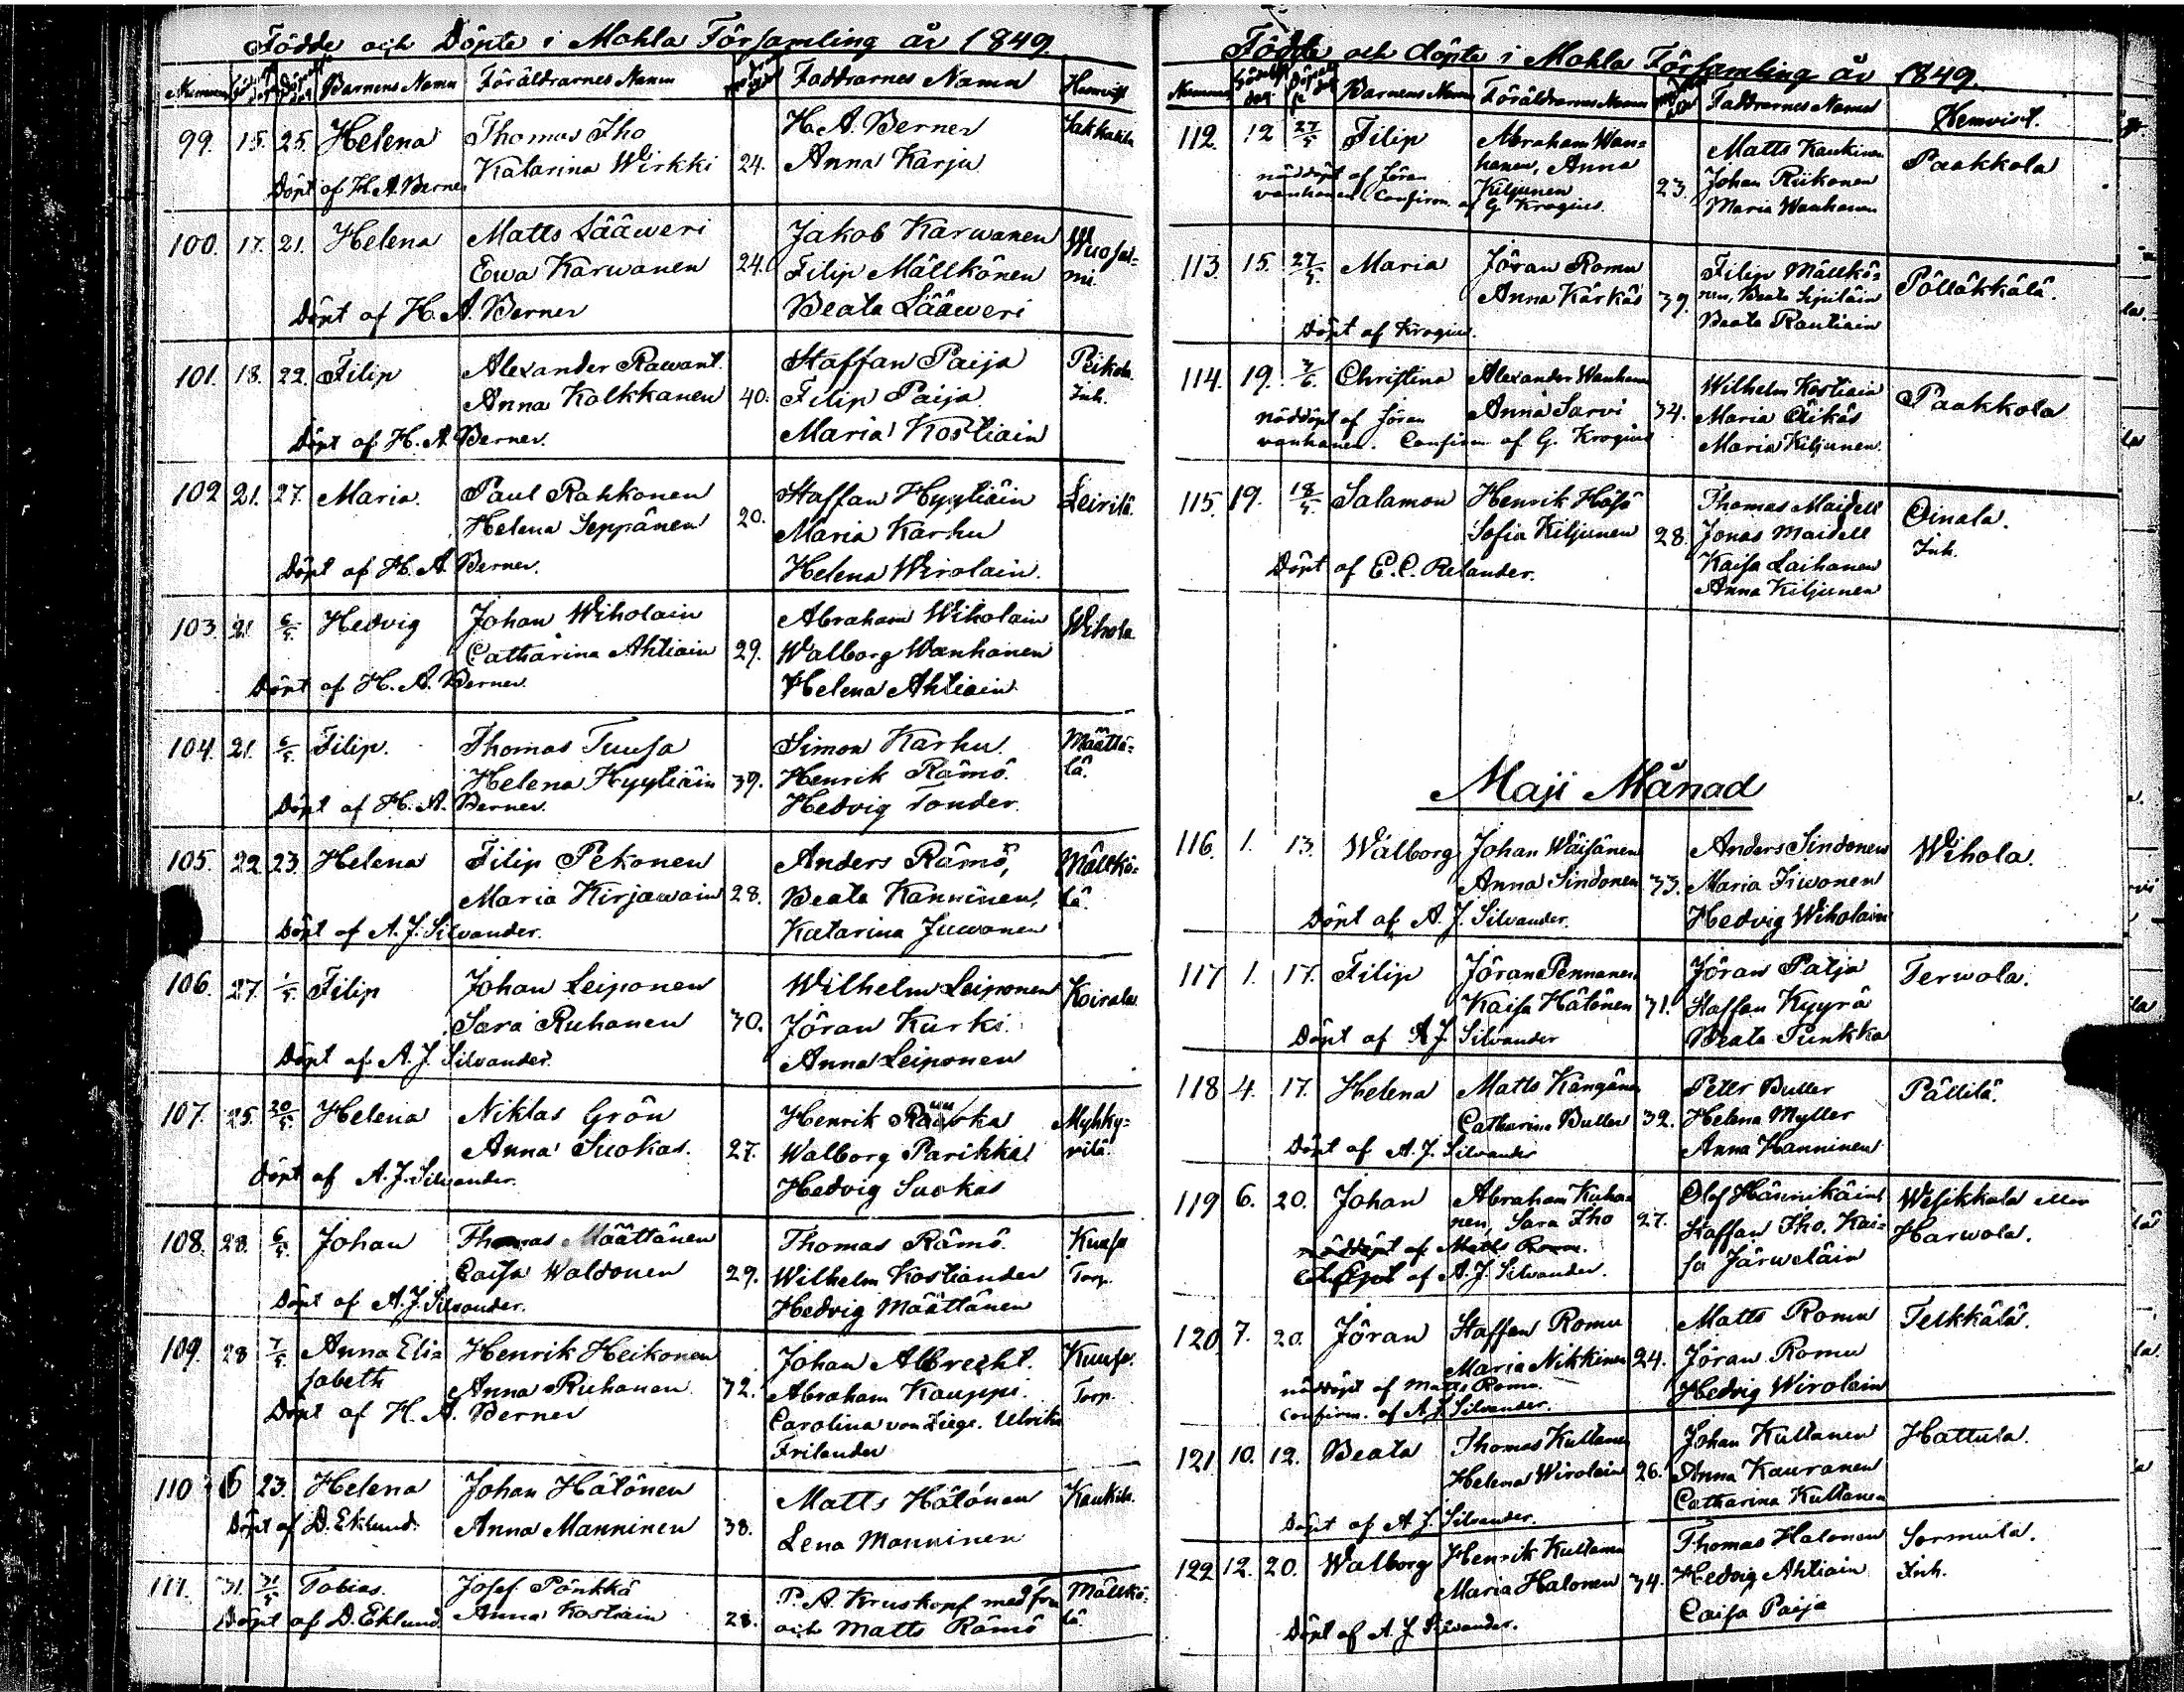 Födde och Döpte i Mohla Församling år 1849.
Barnens Namn Föräldrarnes Namn Faddrarnes Namn Hemvist
99. 15. 25. Helena Thomas Iho H. A. Berner Sakkakila
Katarina Wirkki 24. Anna Karju
Döpt af H. A. Berner
100. 17. 21. Helena Matts Sääweri Jakob Karwanen Wuosal=
Ewa Karwanen 24. Filip Mällkönen mi.
Döpt af H. A. Berner Beata Sääweri
101. 18. 22. Filip Alexander Rawant. Staffan Paija Peikola.
Anna Kolkkanen 40. Filip Paija Inh.
Döpt af H. A. Berner. Maria Kostiain
102 21. 27. Maria. Paul Rahkonen Staffan Hyytiäin Leirilä.
Helena Seppänen 20. Maria Karhu
Döpt af H. A. Berner. Helena Wirolain.
103 21 6/5 Hedvig Johan Wiholain Abraham Wiholain Wihola.
Catharina Ahtiain 29. Walborg Wanhanen
Döpt af H. A. Berner. Helena Ahtiain.
104. 21. 6/5 Filip. Thomas Tuusa Simon Karhu. Määttä=
Helena Hyytiäin 39. Henrik Rämö. lä.
Döpt af H. A. Berner. Hedvig Tonder.
105. 22. 23. Helena Filip Pekonen Anders Rämö, Mällkö=
Maria Kirjawain 28. Beata Kanninen, lä.
Döpt af A. J. Silvander. Katarina Juwonen
106. 27. 1/5 Filip Johan Leiponen Wilhelm Leiponen Koirala
Sara Ruhanen 30. Jöran Kurki.
Döpt af A. J. Silvander. Anna Leiponen
107. 25. 20/5 Helena Niklas Grön Henrik Myhky=
Anna Suokas. 27. Walborg Parikka rilä.
Döpt af A. J. Silvander. Hedvig Suokas
108. 28. 6/5 Johan Thomas Määttänen Thomas Rämö. Kuusa
Caisa Waldonen 29. Wilhelm Kostiander Torp.
Döpt af A. J. Silvander. Hedvig Määttänen
109. 28 7/5 Anna Eli= Henrik Heikonen Johan Albrecht. Kuusa.
sabeth Anna Ruhanen 32. Abraham Kauppi. Torp.
Döpt af H. A. Berner Carolina von Liege. Ulrika
Frilander
110 6 23. Helena Johan Hätönen Matts Hätönen Kaukila.
Döpt af D. Eklund. Anna Manninen 38. Lena Manninen
111. 31. 31/5 Tobias. Josef Pönkkä P. A. Kruskopf med fru Mällkö=
Döpt af D. Eklund Anna Kostiain 28. och Matts Rämö lä.
Födde och döpte i Mohla Församling år 1849.
Barnens Namn Föräldrarnes Namn Faddrarnes Namn Hemvist.
112. 12 27/5 Filip Abraham Wan= Matts Kaukinen Paakkola
nöddöpt af Jöran hanen, Anna Johan Riikonen
vanhanen Confirm. af G. Krogius. Kiljunen 23. Maria Wanhanen
113. 15. 27/5 Maria Jöran Romu Filip Mällkö= Pölläkkälä.
Anna Kärkäs 39. nen, Beata Sipiläin
Döpt af Krogius. Beata Rautiain
114. 19. 3/6 Christina Alexander Wanhanen Wilhelm Kostiain Paakkola
nöddöpt af Jöran Anna Sarvi 34. Maria Äikäs
vanhanen. Confirm. af G. Krogius Maria Kiljunen.
115. 19. 18/5 Salamon Henrik Häsö Thomas Maidell Oinala.
Sofia Kiljunen 28. Jonas Maidell Inh.
Döpt af E. C. Relander. Kaisa Laihanen
Anna Kiljunen
Maji Månad
116. 1. 13. Walborg Johan Wäisänen Anders Sindonen Wihola.
Anna Sindonen 33. Maria Siwonen
Döpt af A. J. Silvander. Hedvig Wiholain
117 1. 17. Filip Jöran Pennanen Jöran Patja Terwola.
Kaisa Hätönen 31. Staffan Kyyrä
Döpt af A J. Silvander Beata Punkka
118 4. 17. Helena Matts Kangänen Peter Buller Pällilä.
Catharina Buller 32. Helena Myller
Döpt af A. J. Silvander Anna Hanninen
119 6. 20. Johan Abraham Kuha= Olof Hännikäine Wesikkala eller
nen, Sara Iho 27. Staffan Iho. Kai= Harwola.
nöddöpt af Matts Romu. sa Järweläin
af A. J. Silvander.
120 7. 20. Jöran Staffan Romu Matts Romu Telkkälä.
Maria Nikkinen 24. Jöran Romu
nöddöpt af Matts Romu. Hedvig Wirolain
Confirm. af A. J. Silvander.
121 10. 12. Beata Thomas Kultanen Johan Kultanen Hattula.
Helena Wirolain 26. Anna Kauranen
Döpt af A. J. Silvander. Catharina Kultanen
122 12. 20. Walborg Henrik Kultanen Thomas Halonen Sormula.
Maria Halonen 34. Hedvig Ahtiain Inh.
Döpt af A. J. Silvander. Caisa Paija